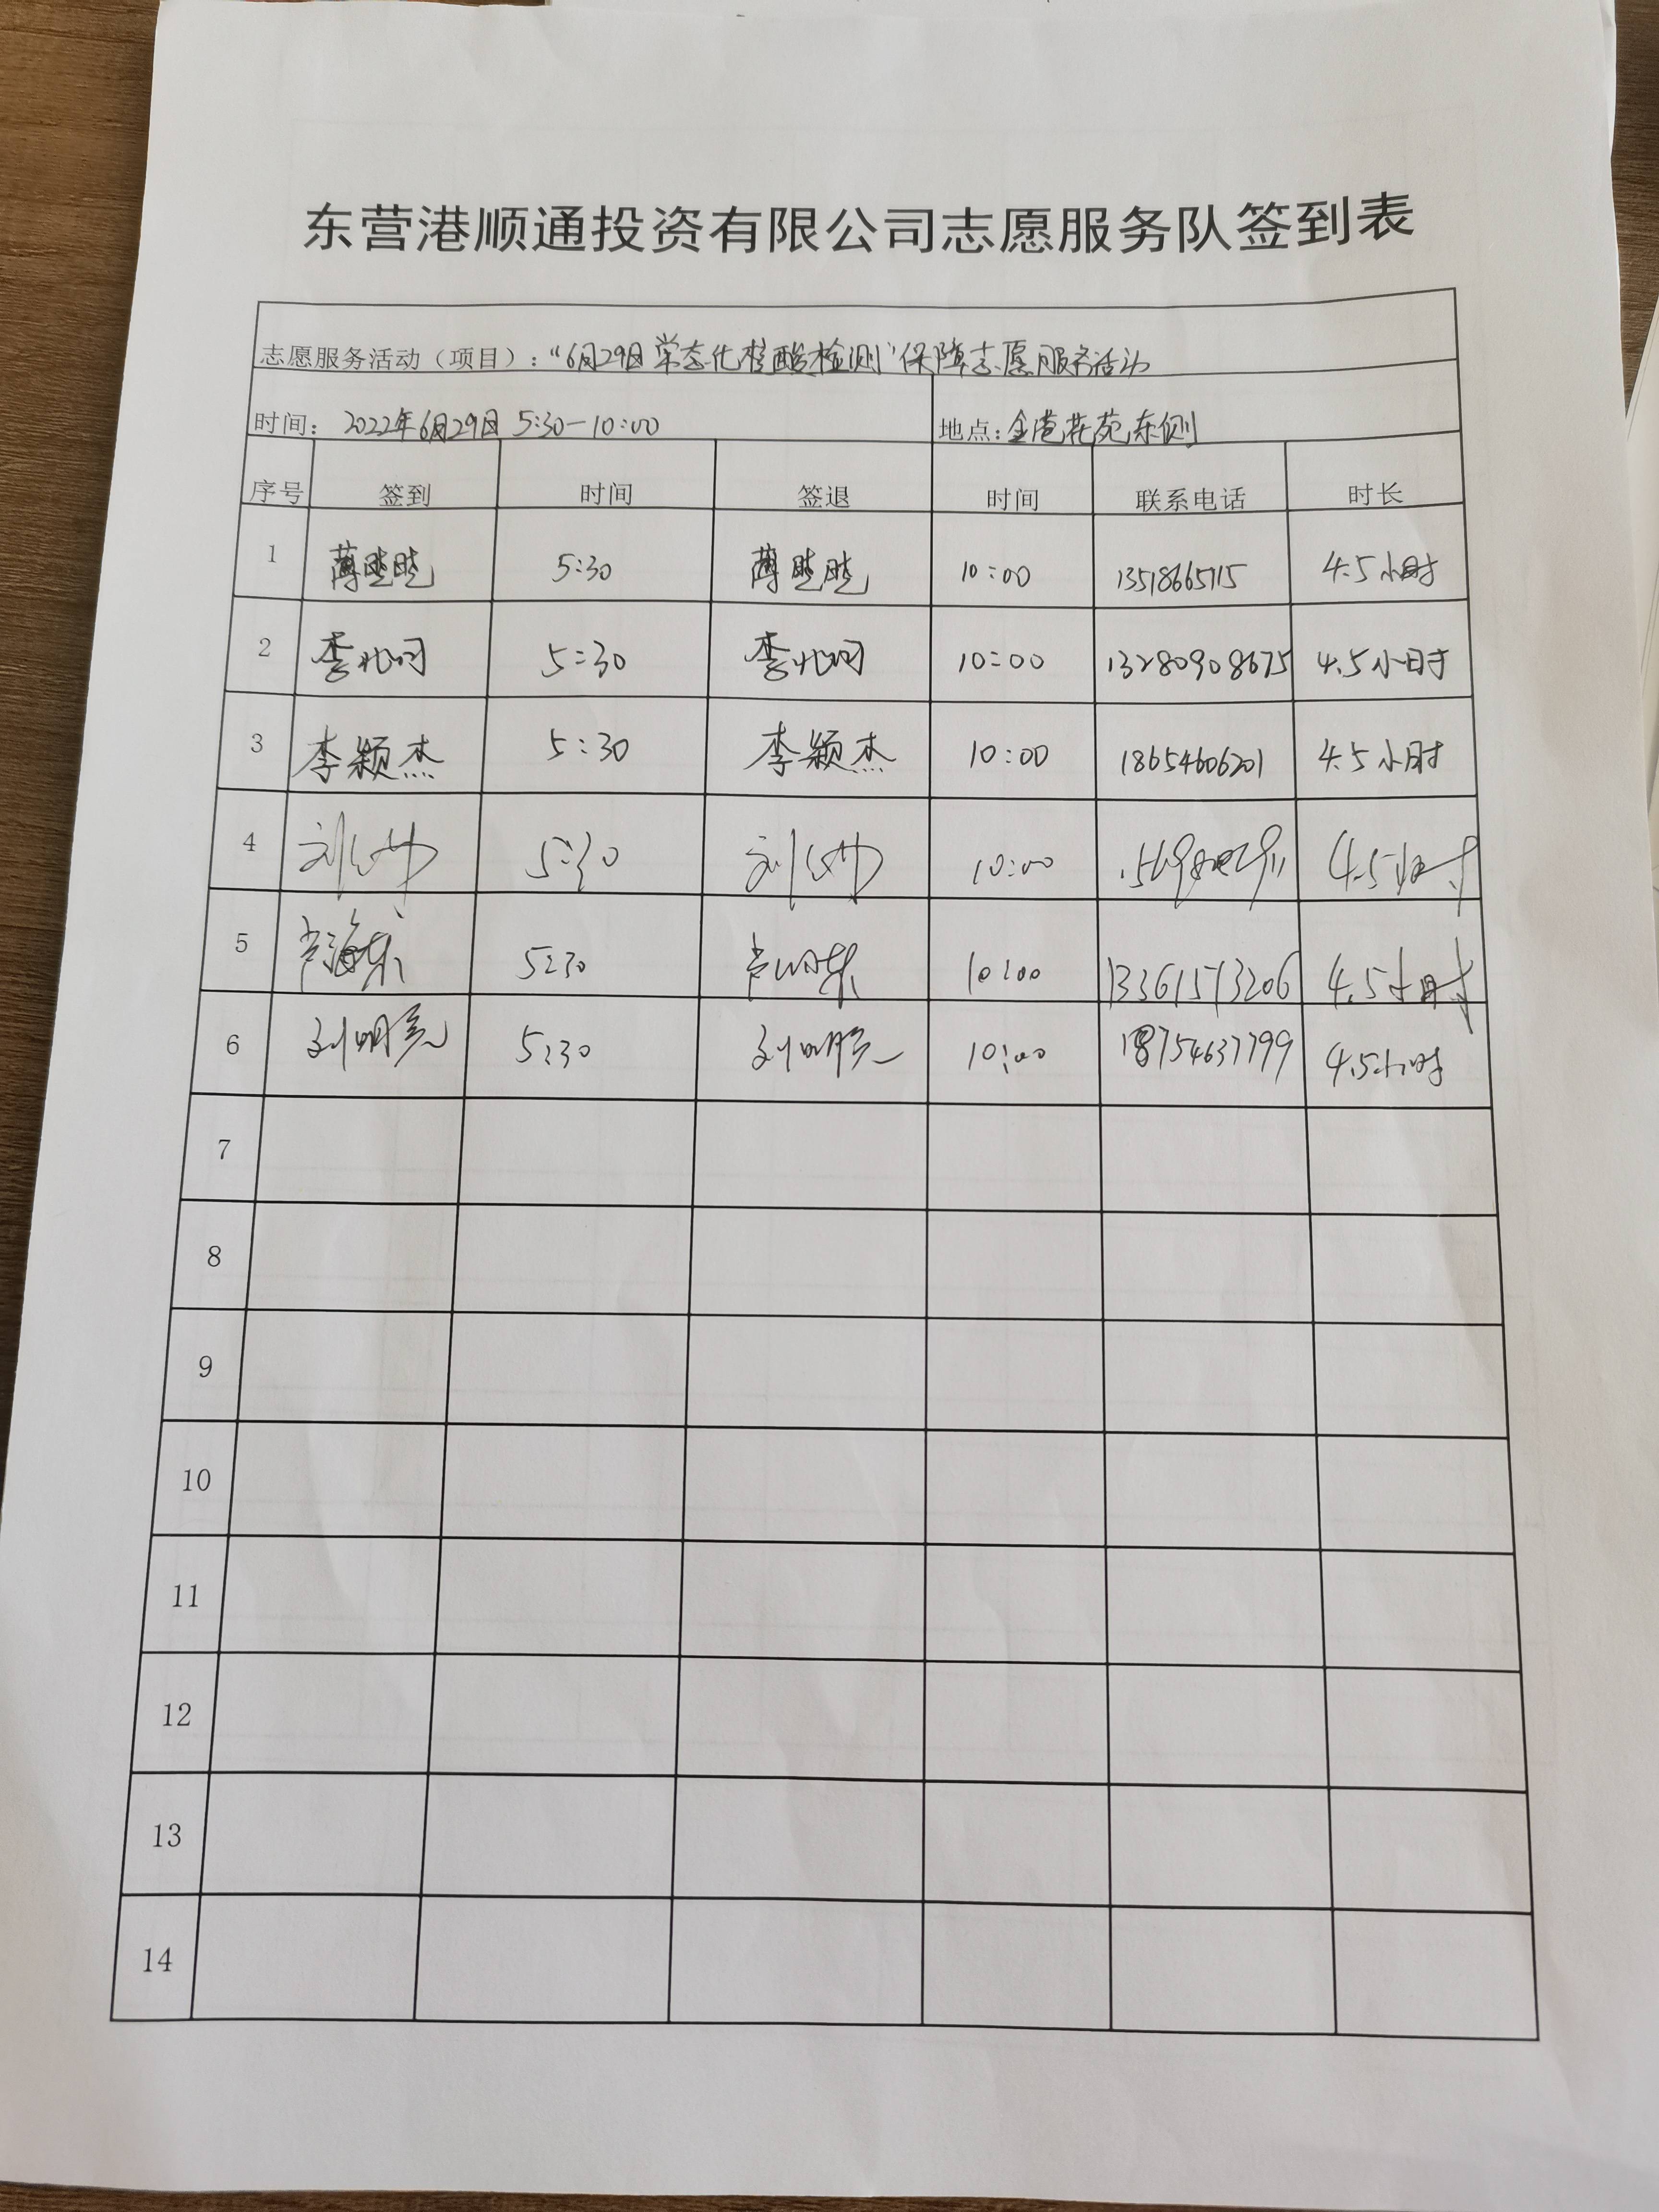 东营港顺通投资有限公司志愿服务队签到表
志愿服务活动（项目）：“6月29日常态化核酸检测”保障志愿服务活动
时间： 2022年6月29日 5:30-10:00 地点：金港花苑东侧
序号 签到 时间 签退 时间 联系电话 时长
1 薄 5:30 薄 10:00 13518665715 4.5小时
2 李 5:30 李 10:00 13280908675 4.5小时
3 李颖杰 5:30 李颖杰 10:00 18654606201 4.5小时
4 刘 5:30 刘 10:00 4.5小时
5 海东 5:30 10:00 13361513206 4.5小时
6 刘明亮 5:30 刘明亮 10:00 18754637799 4.5小时
7
8
9
10
11
12
13
14